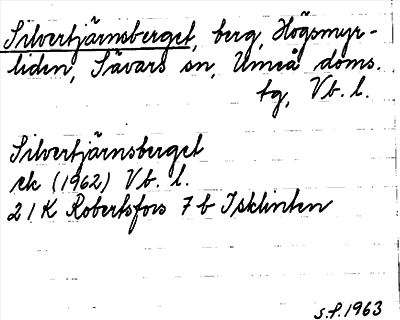 Silvertjärnsberget, berg, Högsmyr-
liden, Sävars sn, Umeå doms.
tg, Vb. l.
Silvertjärnsberget
ek (1962) Vb. l.
21 K Robertsfors 7 b Isklinten
s.f. 1963